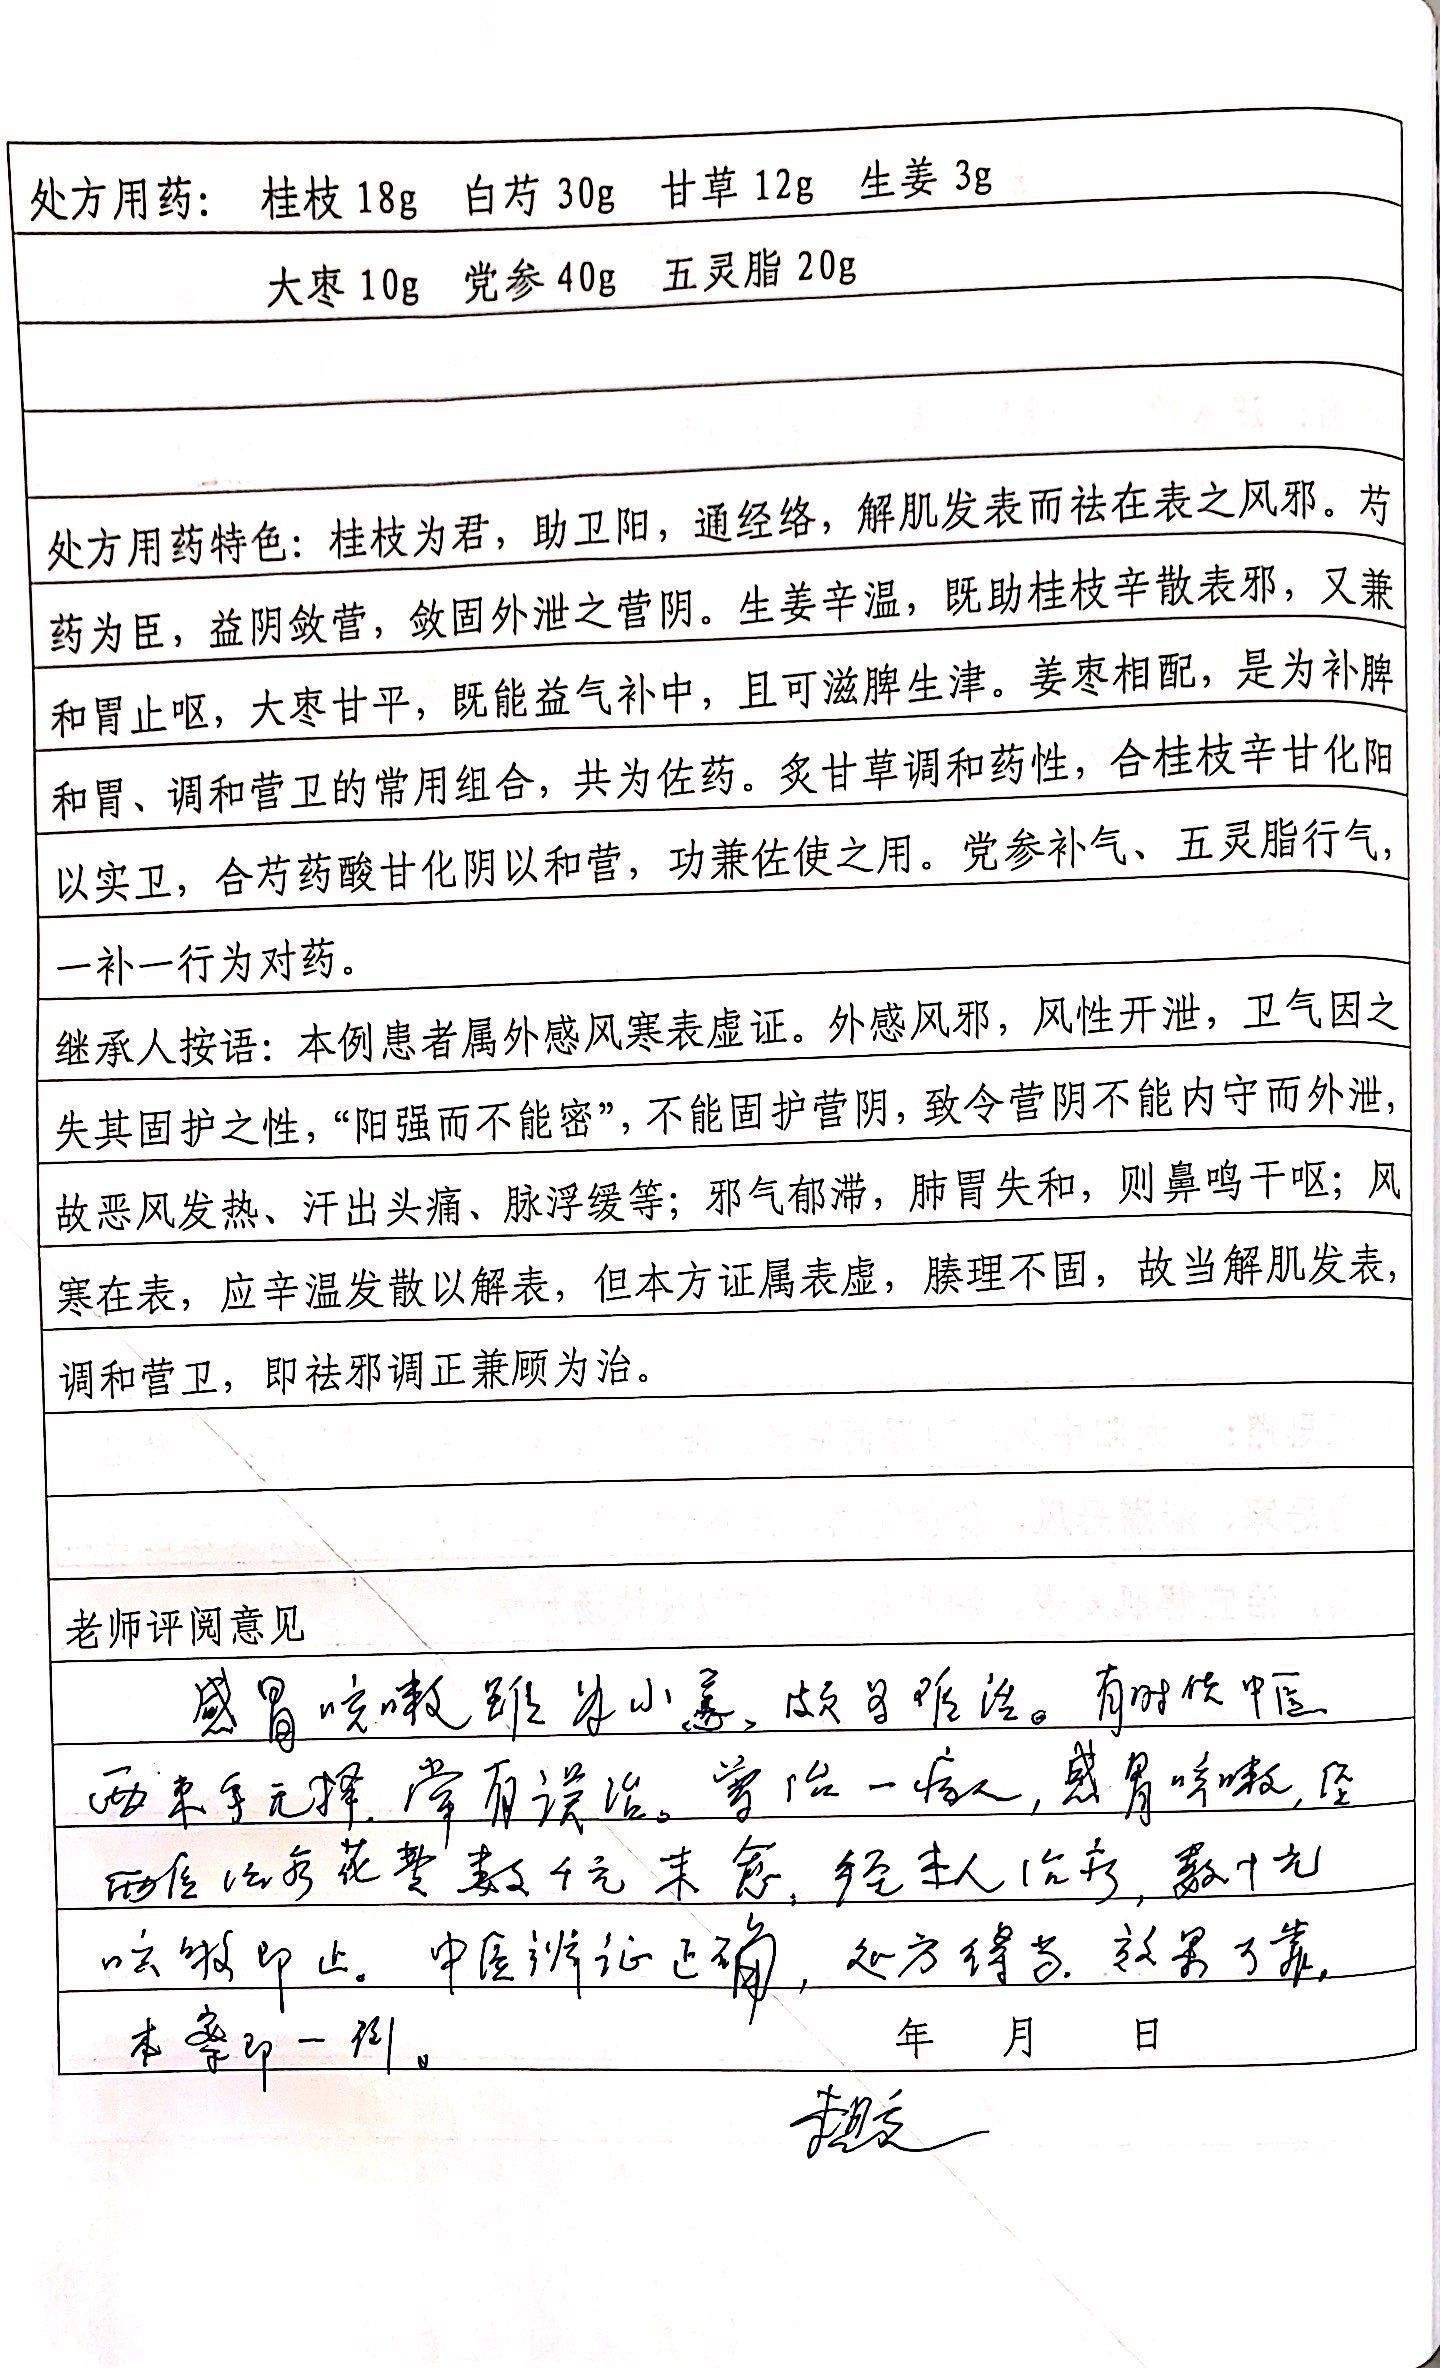 处方用药： 桂枝 18g 白芍 30g 甘草 12g 生姜 3g
大枣 10g 党参 40g 五灵脂 20g
处方用药特色：桂枝为君，助卫阳，通经络，解肌发表而祛在表之风邪。芍
药为臣，益阴敛营，敛固外泄之营阴。生姜辛温，既助桂枝辛散表邪，又兼
和胃止呕，大枣甘平，既能益气补中，且可滋脾生津。姜枣相配，是为补脾
和胃、调和营卫的常用组合，共为佐药。炙甘草调和药性，合桂枝辛甘化阳
以实卫，合芍药酸甘化阴以和营，功兼佐使之用。党参补气、五灵脂行气，
一补一行为对药。
继承人按语：本例患者属外感风寒表虚证。外感风邪，风性开泄，卫气因之
失其固护之性，“阳强而不能密”，不能固护营阴，致令营阴不能内守而外泄，
故恶风发热、汗出头痛、脉浮缓等；邪气郁滞，肺胃失和，则鼻鸣干呕；风
寒在表，应辛温发散以解表，但本方证属表虚，腠理不固，故当解肌发表，
调和营卫，即祛邪调正兼顾为治。
老师评阅意见
感冒咳嗽虽为小恙、颇为难治。有时使中医
西束手无择，常有误治。曾治一病人，感冒咳嗽，经
西医治疗花费数千元未愈，经本人治疗，数十元
咳嗽即止。中医辨证正确，处方得当，效果可靠，
本案即一例。
年 月 日